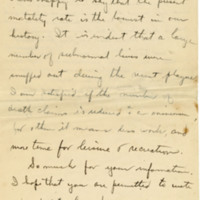 happy to say that the present
mortality rate is the lowest in our
history. It is evident that a large
number of policies lives were
snuffed out during the recent plague
I am satisfied if the number of
death claims is reduced to a minimum
for others it means less work, and
more time for leisure & recreation.
So much for your information.
I hope that you are permitted to write